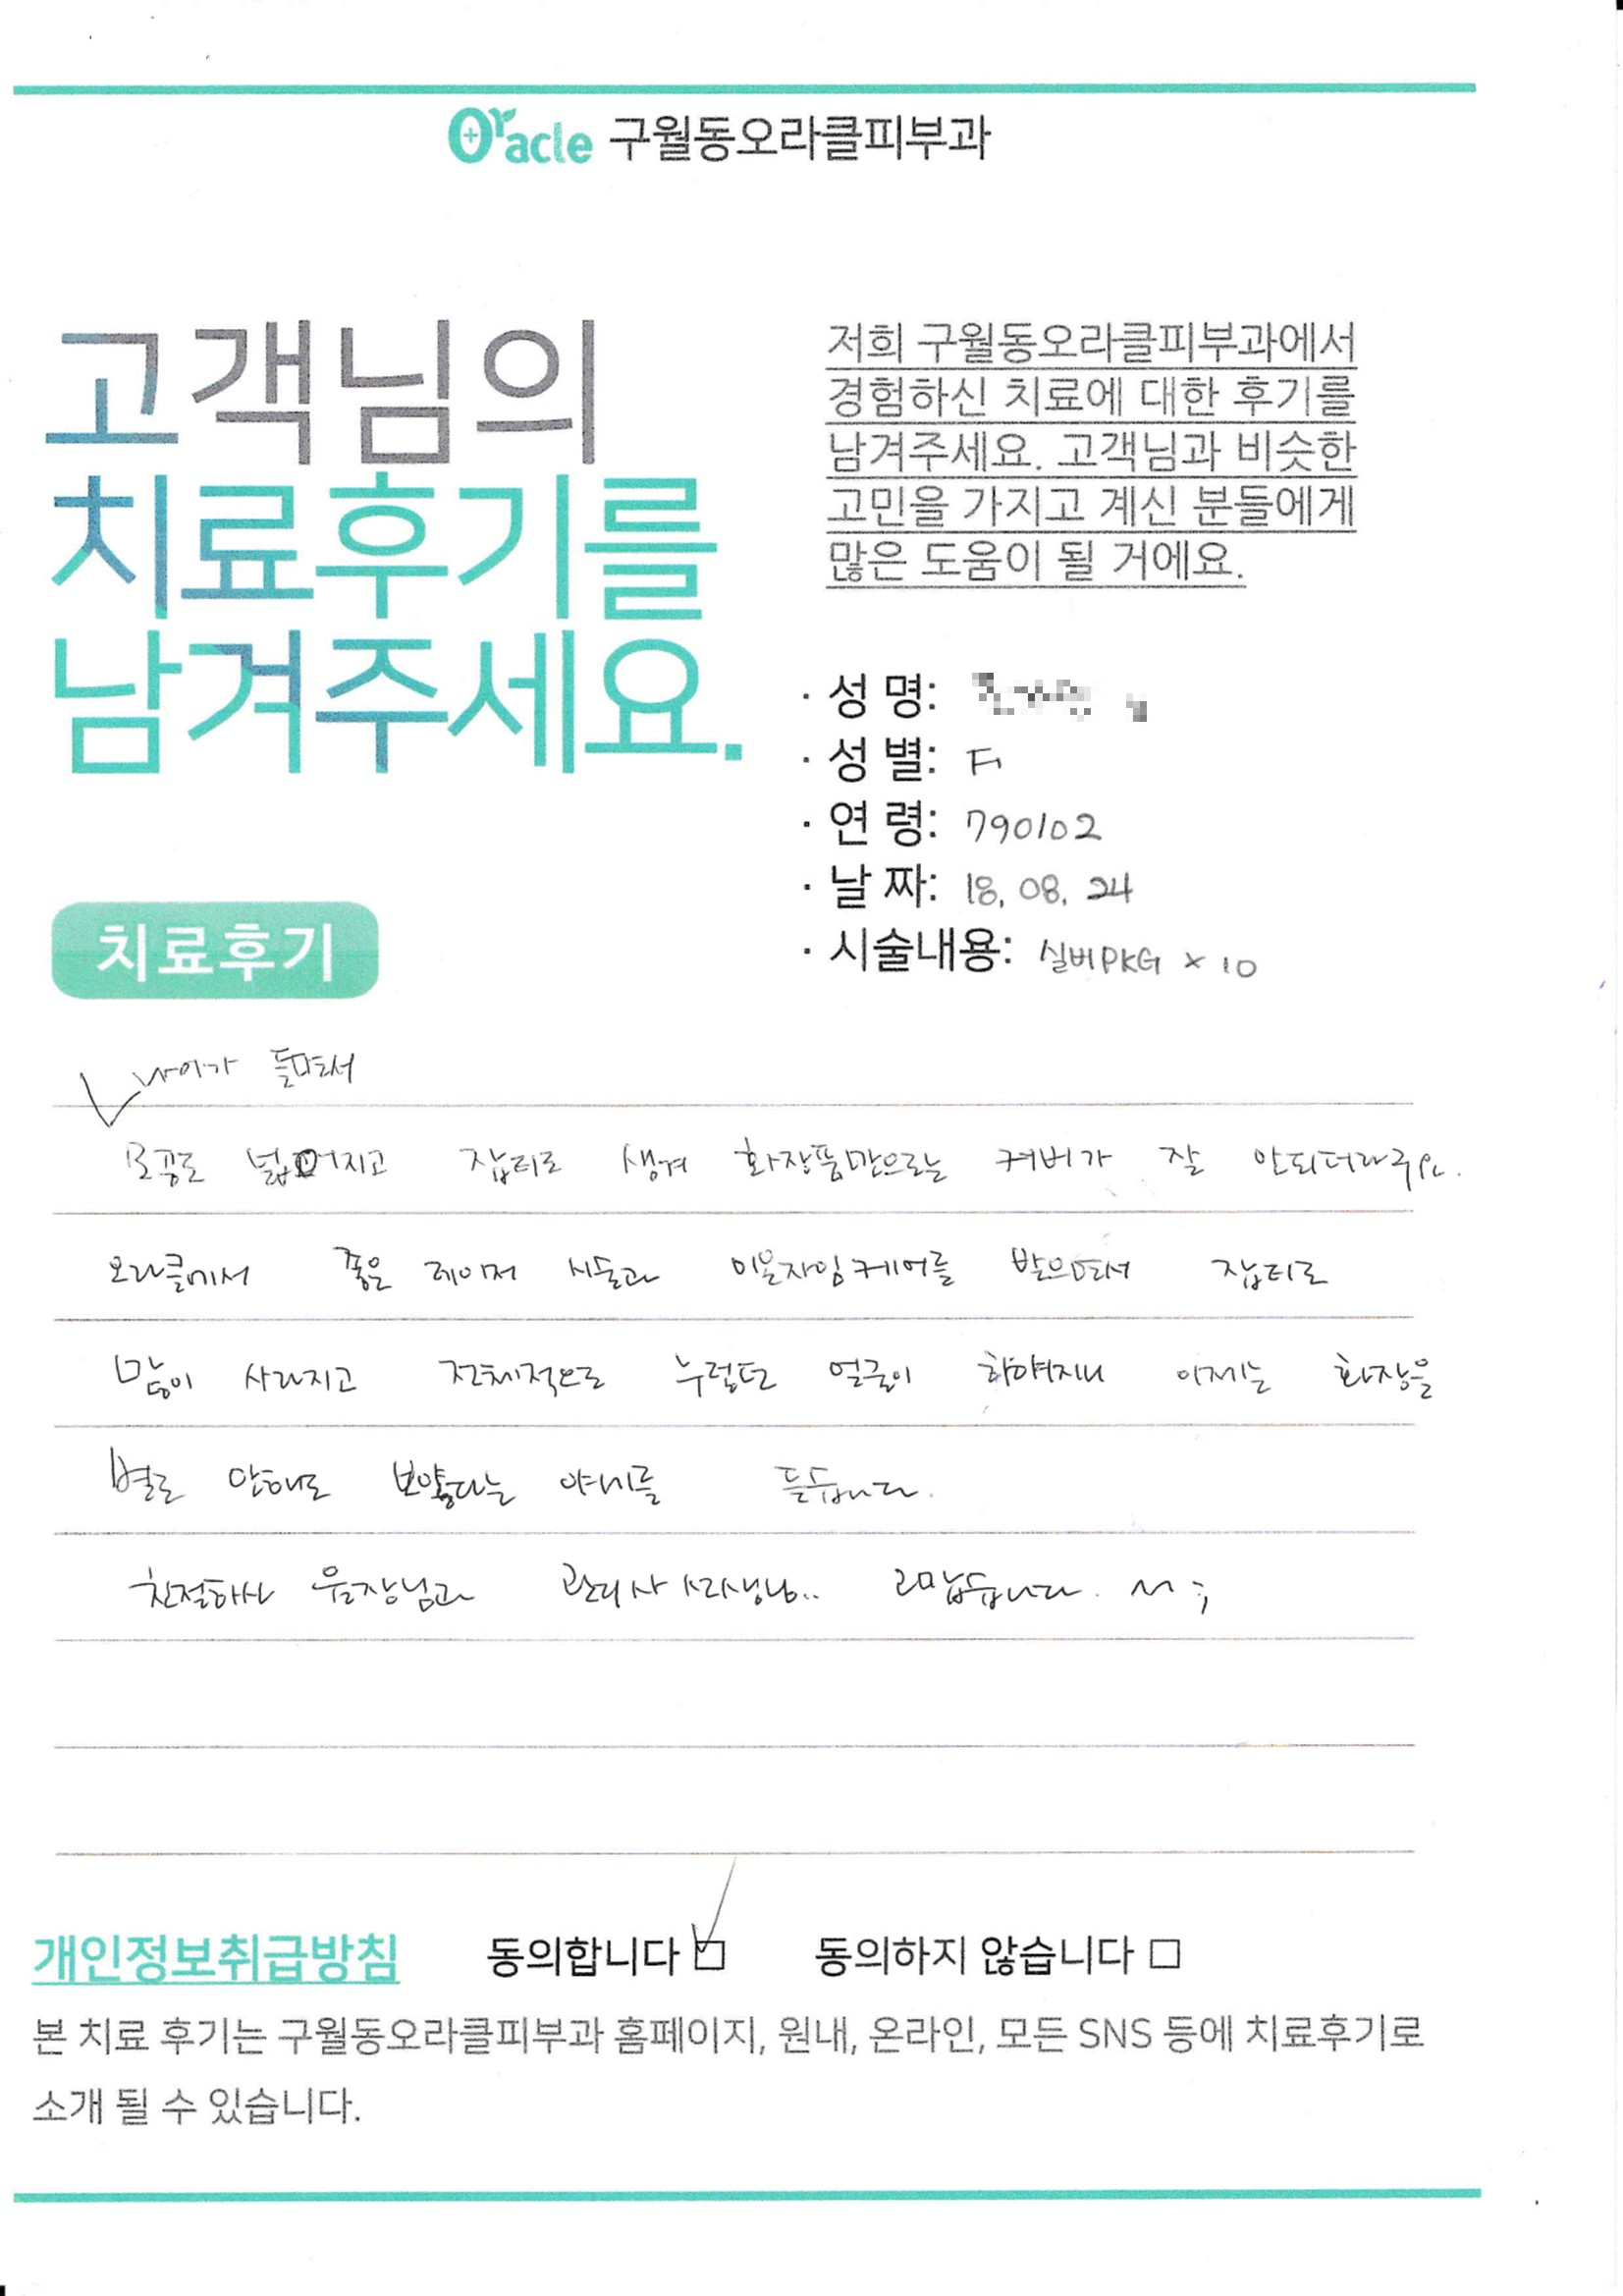 Oracle 구월동오라클피부과
고객님의
치료후기를
남겨주세요.
저희 구월동오라클피부과에서
경험하신 치료에 대한 후기를
남겨주세요. 고객님과 비슷한
고민을 가지고 계신 분들에게
많은 도움이 될 거에요.
· 성 명:
· 성 별: F
· 연 령: 790102
· 날 짜: 18. 08. 24
· 시술내용: 실버PKG × 10
치료후기
나이가 들면서
모공도 넓어지고 잡티도 생겨 화장품만으로는 커버가 잘 안되더라구요.
오라클에서 좋은 레이저 시술과 이온자임케어를 받으면서 잡티도
많이 사라지고 전체적으로 누렇던 얼굴이 하얘지니 이제는 화장을
별로 안해도 보얗다는 얘기를 듣습니다.
친절하신 원장님과 관리사 선생님.. 고맙습니다. ^^;
개인정보취급방침 동의합니다 동의하지 않습니다
본 치료 후기는 구월동오라클피부과 홈페이지, 원내, 온라인, 모든 SNS 등에 치료후기로
소개 될 수 있습니다.